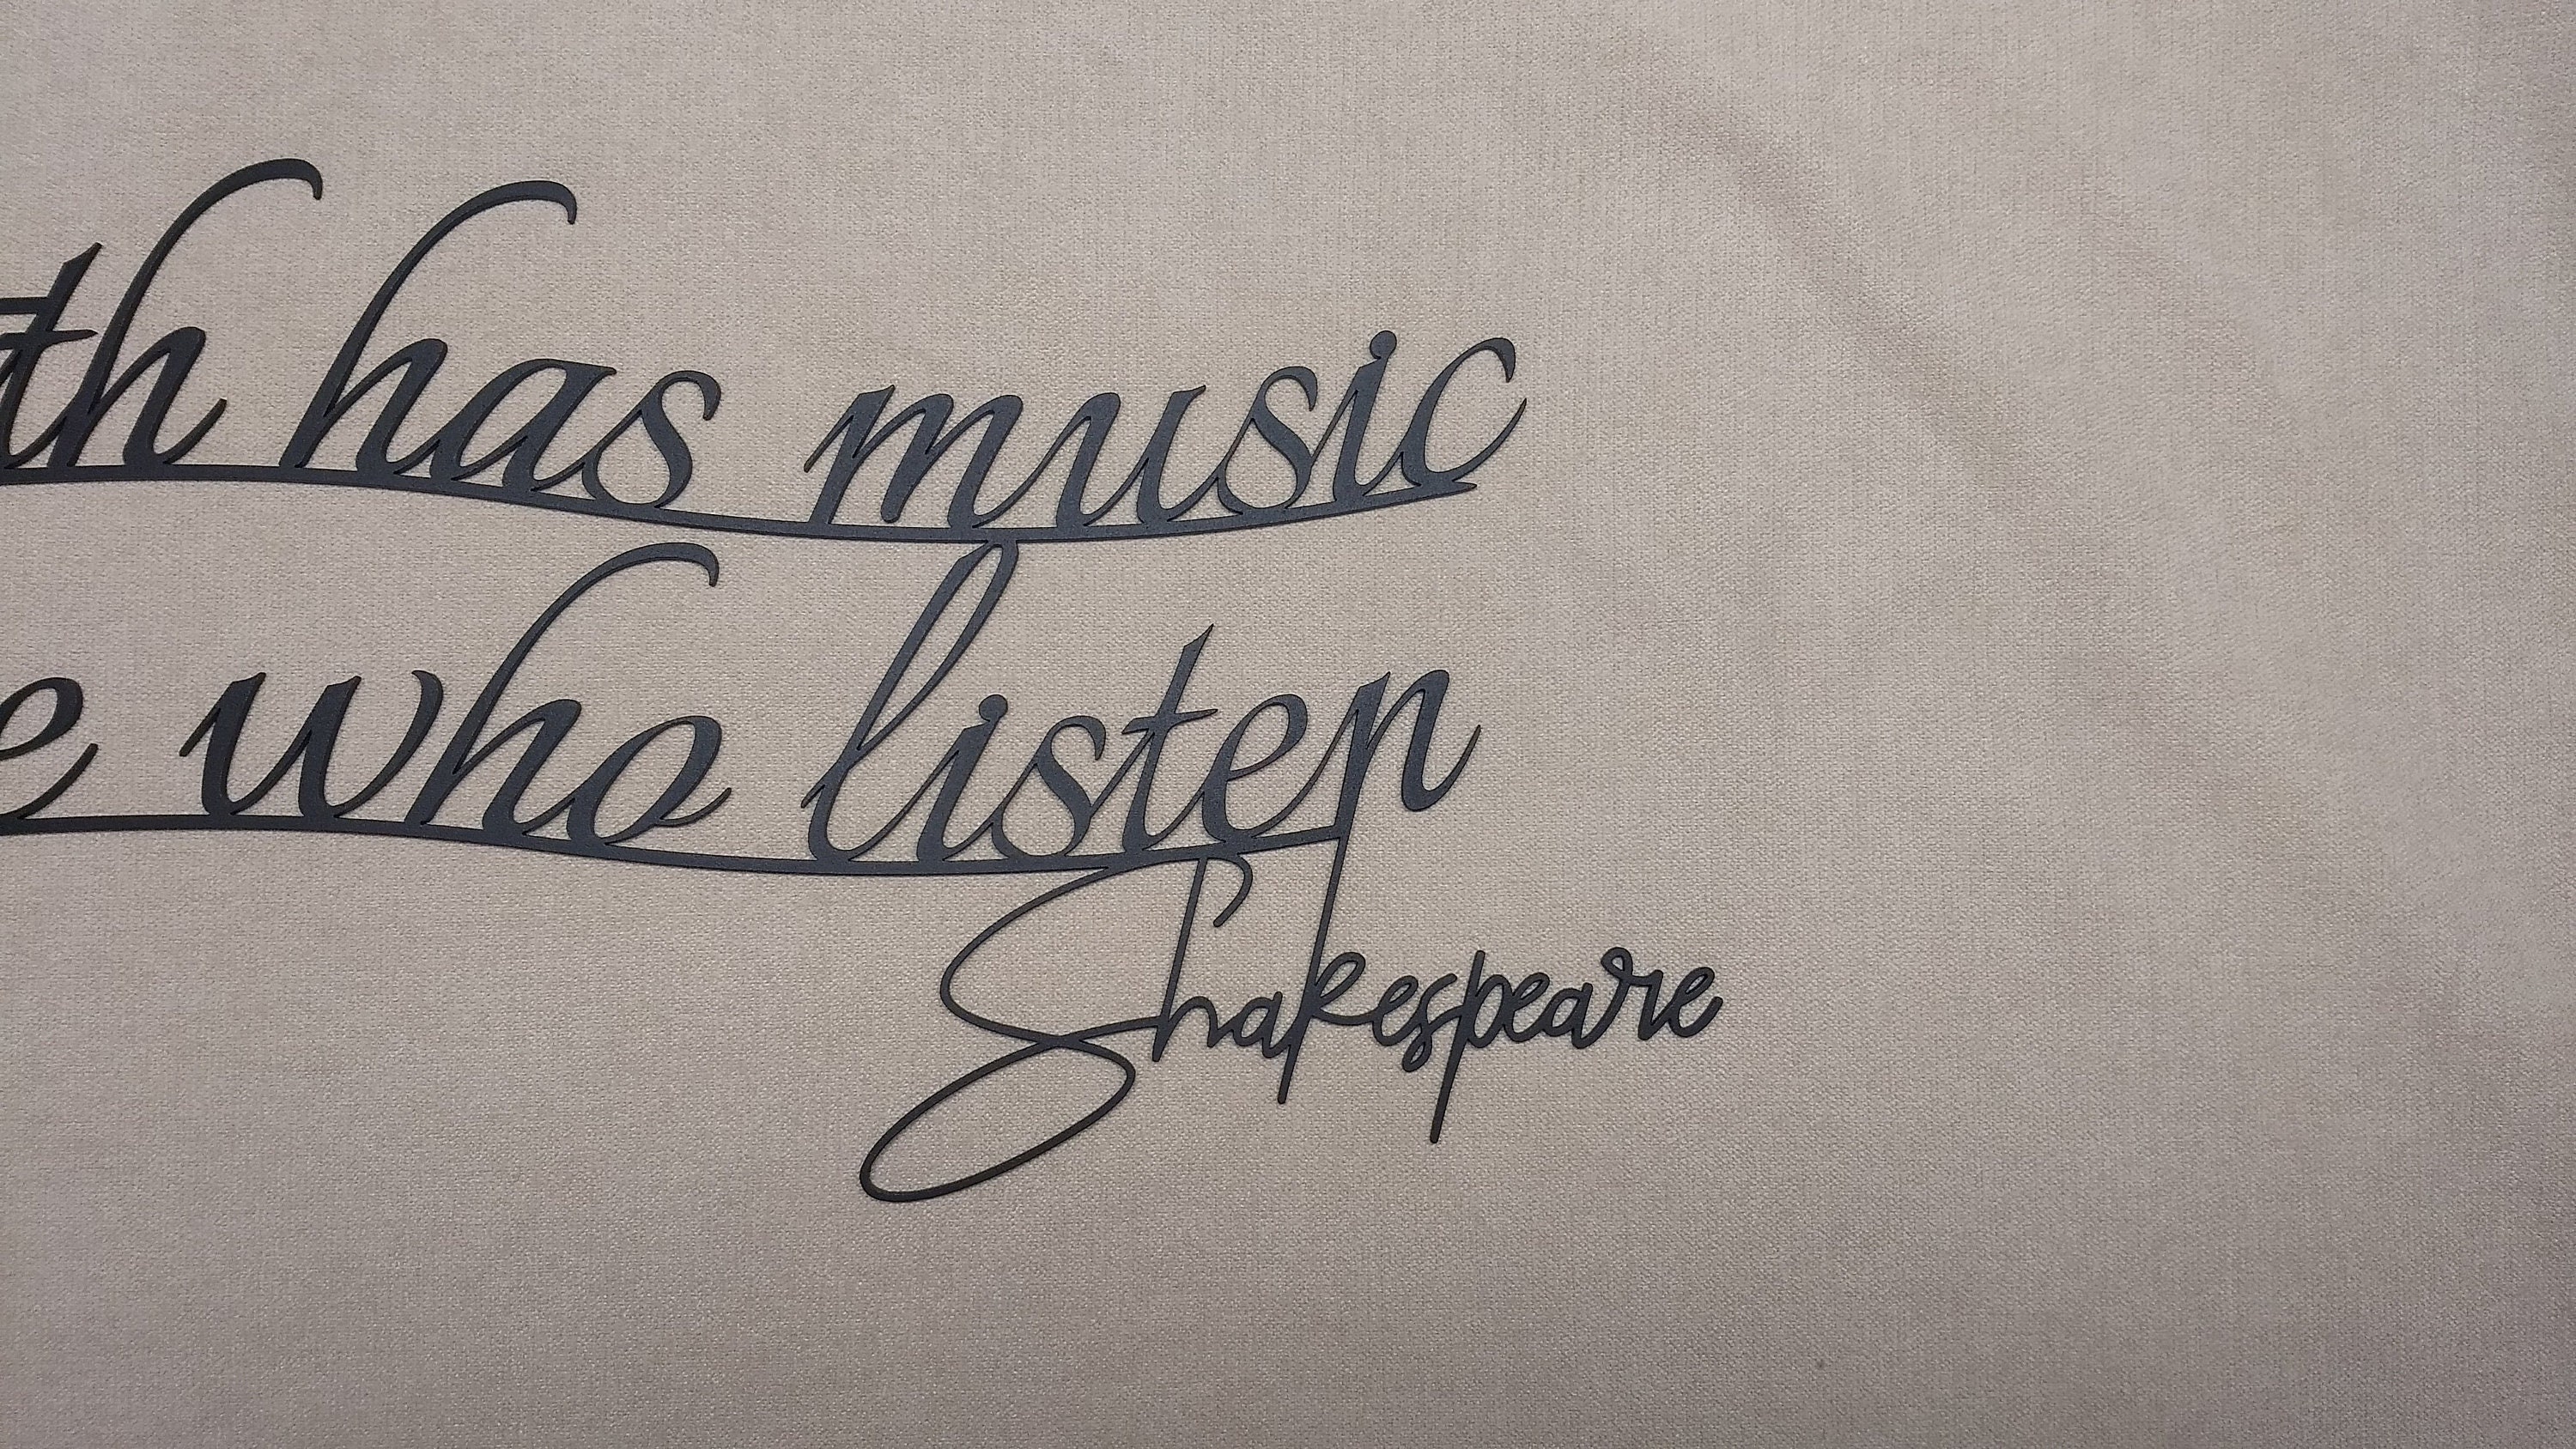 th has music
e who listen
Shakespeare